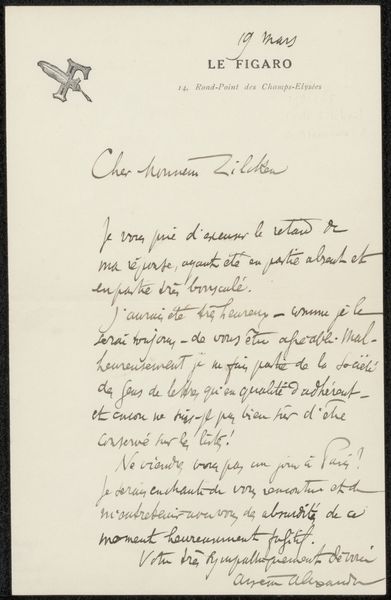 19 mars
LE FIGARO
14, Rond-Point des Champs-Elysées
Cher Monsieur Zilcken
Je vous prie d'excuser le retard de
ma réponse, ayant été en partie absent et
en partie très bousculé.
J'aurais été très heureux - comme je le
serai toujours - de vous être agréable. Mal-
heureusement je ne fais partie de la Société
des Gens de lettres qu'en qualité d'adhérent -
et encore ne suis-je pas bien sûr d'être
conservé sur les listes!
Ne viendrez vous pas un jour à Paris?
Je serais enchanté de vous rencontrer et de
m'entretenir avec vous des absurdités de ce
moment heureusement fugitif.
Votre très sympathiquement dévoué
Arsène Alexandre